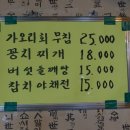 가오리회무침 25,000
꽁치찌개 18,000
버섯들깨탕 15,000
참치야채전 15,000